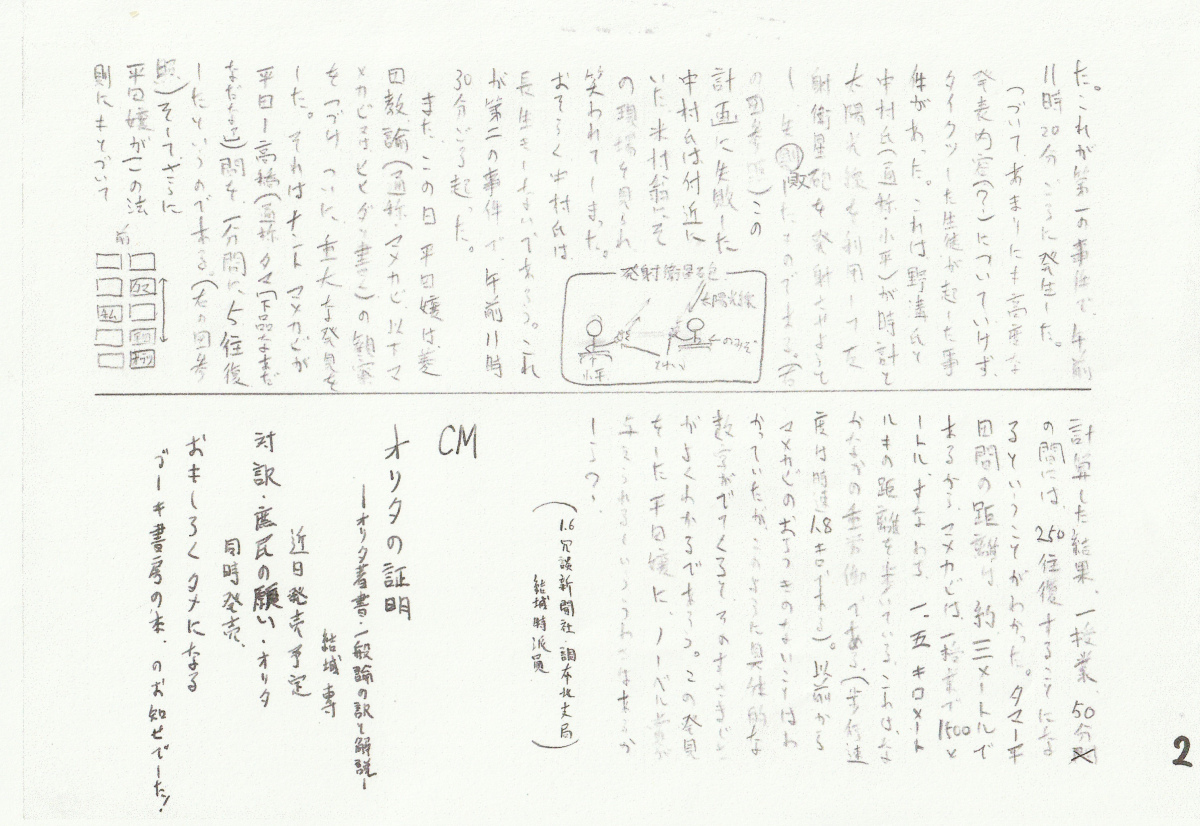 た。これが第一の事件で、午前
11時20分ごろに発生した。
つづいてあまりにも高度な
発表内容(?)についていけず、
タイクツした生徒が起した事
件があった。これは野溝氏と
中村氏(通称・小平)が時計と
太陽光線を利用して
射衛星砲を発射させようと
し 失敗したものである。(右
の図参照)この
計画に失敗した
中村氏は付近に
いた木村翁にそ
の現場を見られ
笑われてしまった。
おそらく中村氏は、
長生きしないであろう。これ
が第二の事件で、午前11時
30分ごろ起った。
発射衛星砲
太陽光線
のみぞ
とけい
小平
また、この日 平田嬢は、菱
田教諭(通称、マメカビ 以下マ
メカビ の観察
をつづけ ついに、重大な発見を
した。それはナント マメカビが
平田ー高橋(通称タマ(下品なまだ
なだなあ)間を、一分間に5往復
したというのである。(左の図参
照)そして、さらに
平田嬢がこの法
則にもとづいて
前
計算した結果、一授業、50分
の間には、250往復することにな
るということがわかった。タマー平
田間の距離は、約三メートルで
あるから、マメカビは、一授業で1500メ
ートル、すなわち、一.五キロメート
ルもの距離を歩いている。これは、な
かなかの重労働である(歩行速
度は時速1.8キロである)。以前から
マメカビのおちつきのないことはわ
かっていたが、このように具体的な
数字がでてくるとそのすさまじさ
がよくわかるであろう。この発見
をした平田嬢に、ノーベル賞が
与えられるといううわさはあるか
しら?
(1.6冗談新聞社・調本北支局
結城特派員)
CM
オリタの証明
ーオリタ著書・一般論の訳と解説ー
結城 専
近日発売予定
対訳・庶民の願い・オリタ
同時発売、
おもしろくタメになる
ブーキ書房の本、のお知せでーた!
2